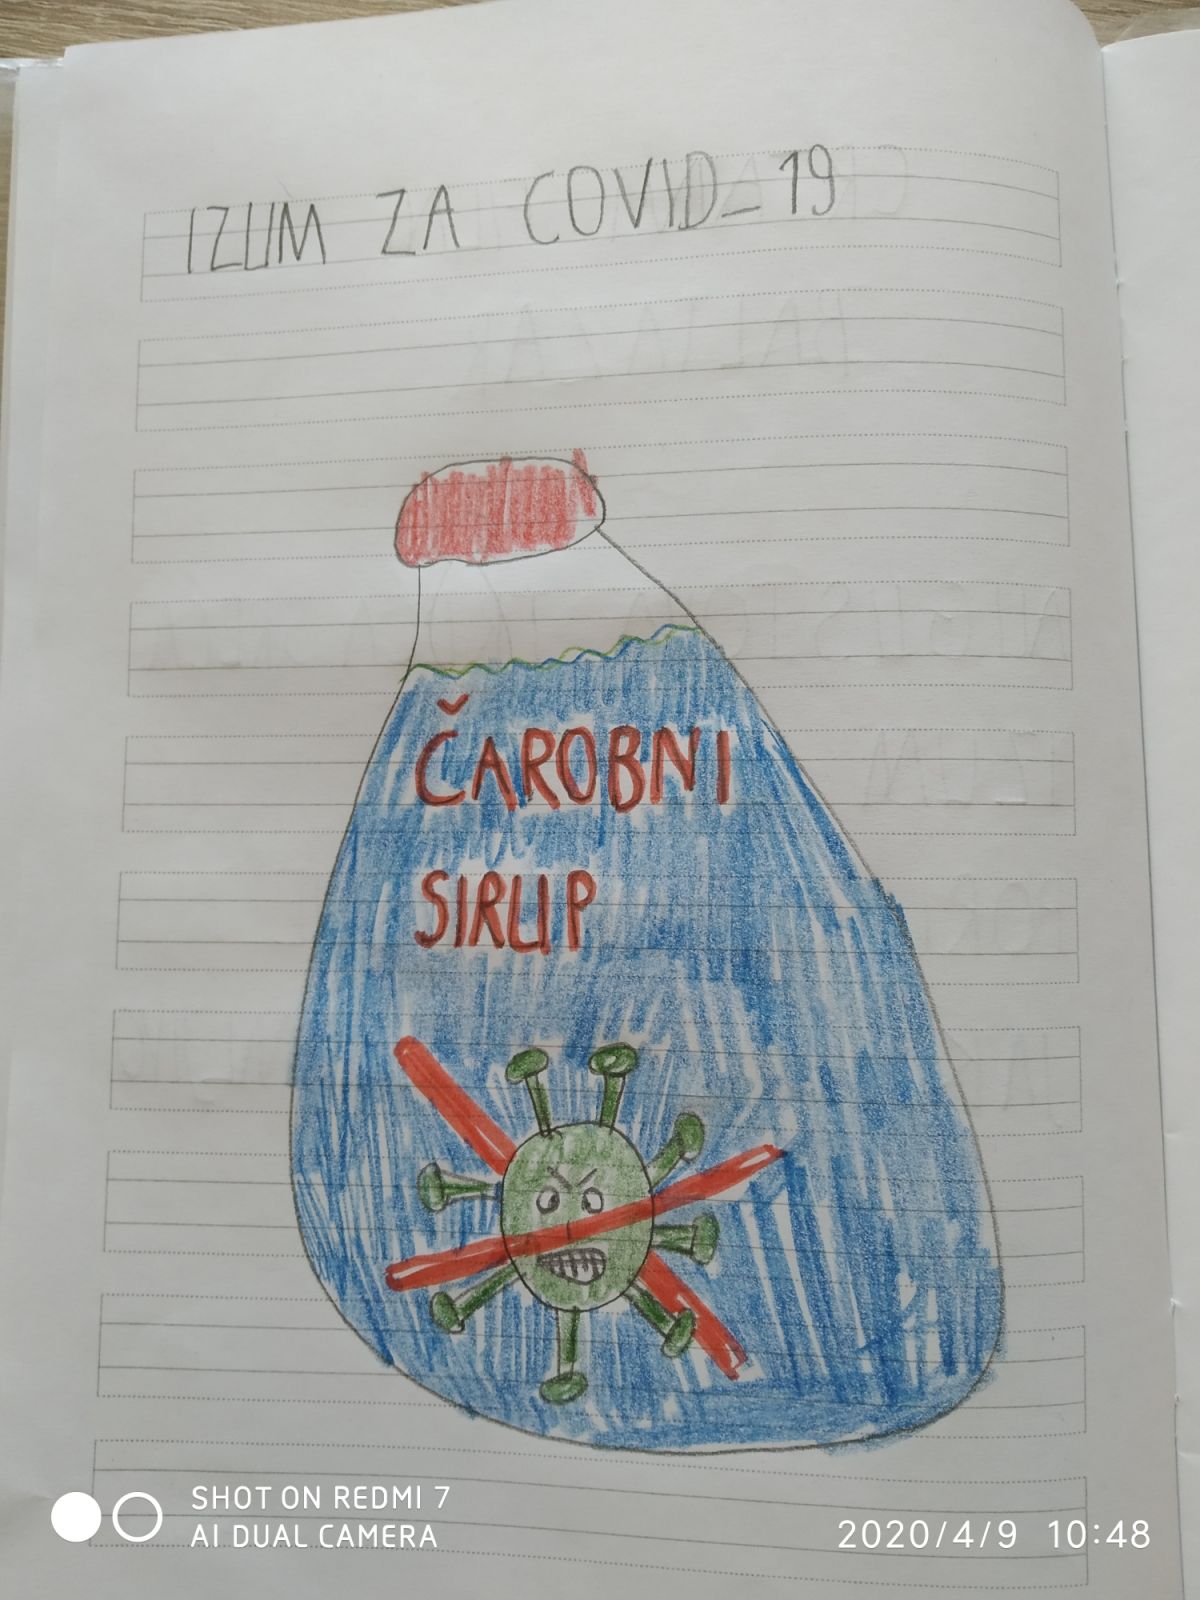 IZUM ZA COVID_19
ČAROBNI
SIRUP
SHOT ON REDMI 7
AI DUAL CAMERA
2020/4/9 10:48